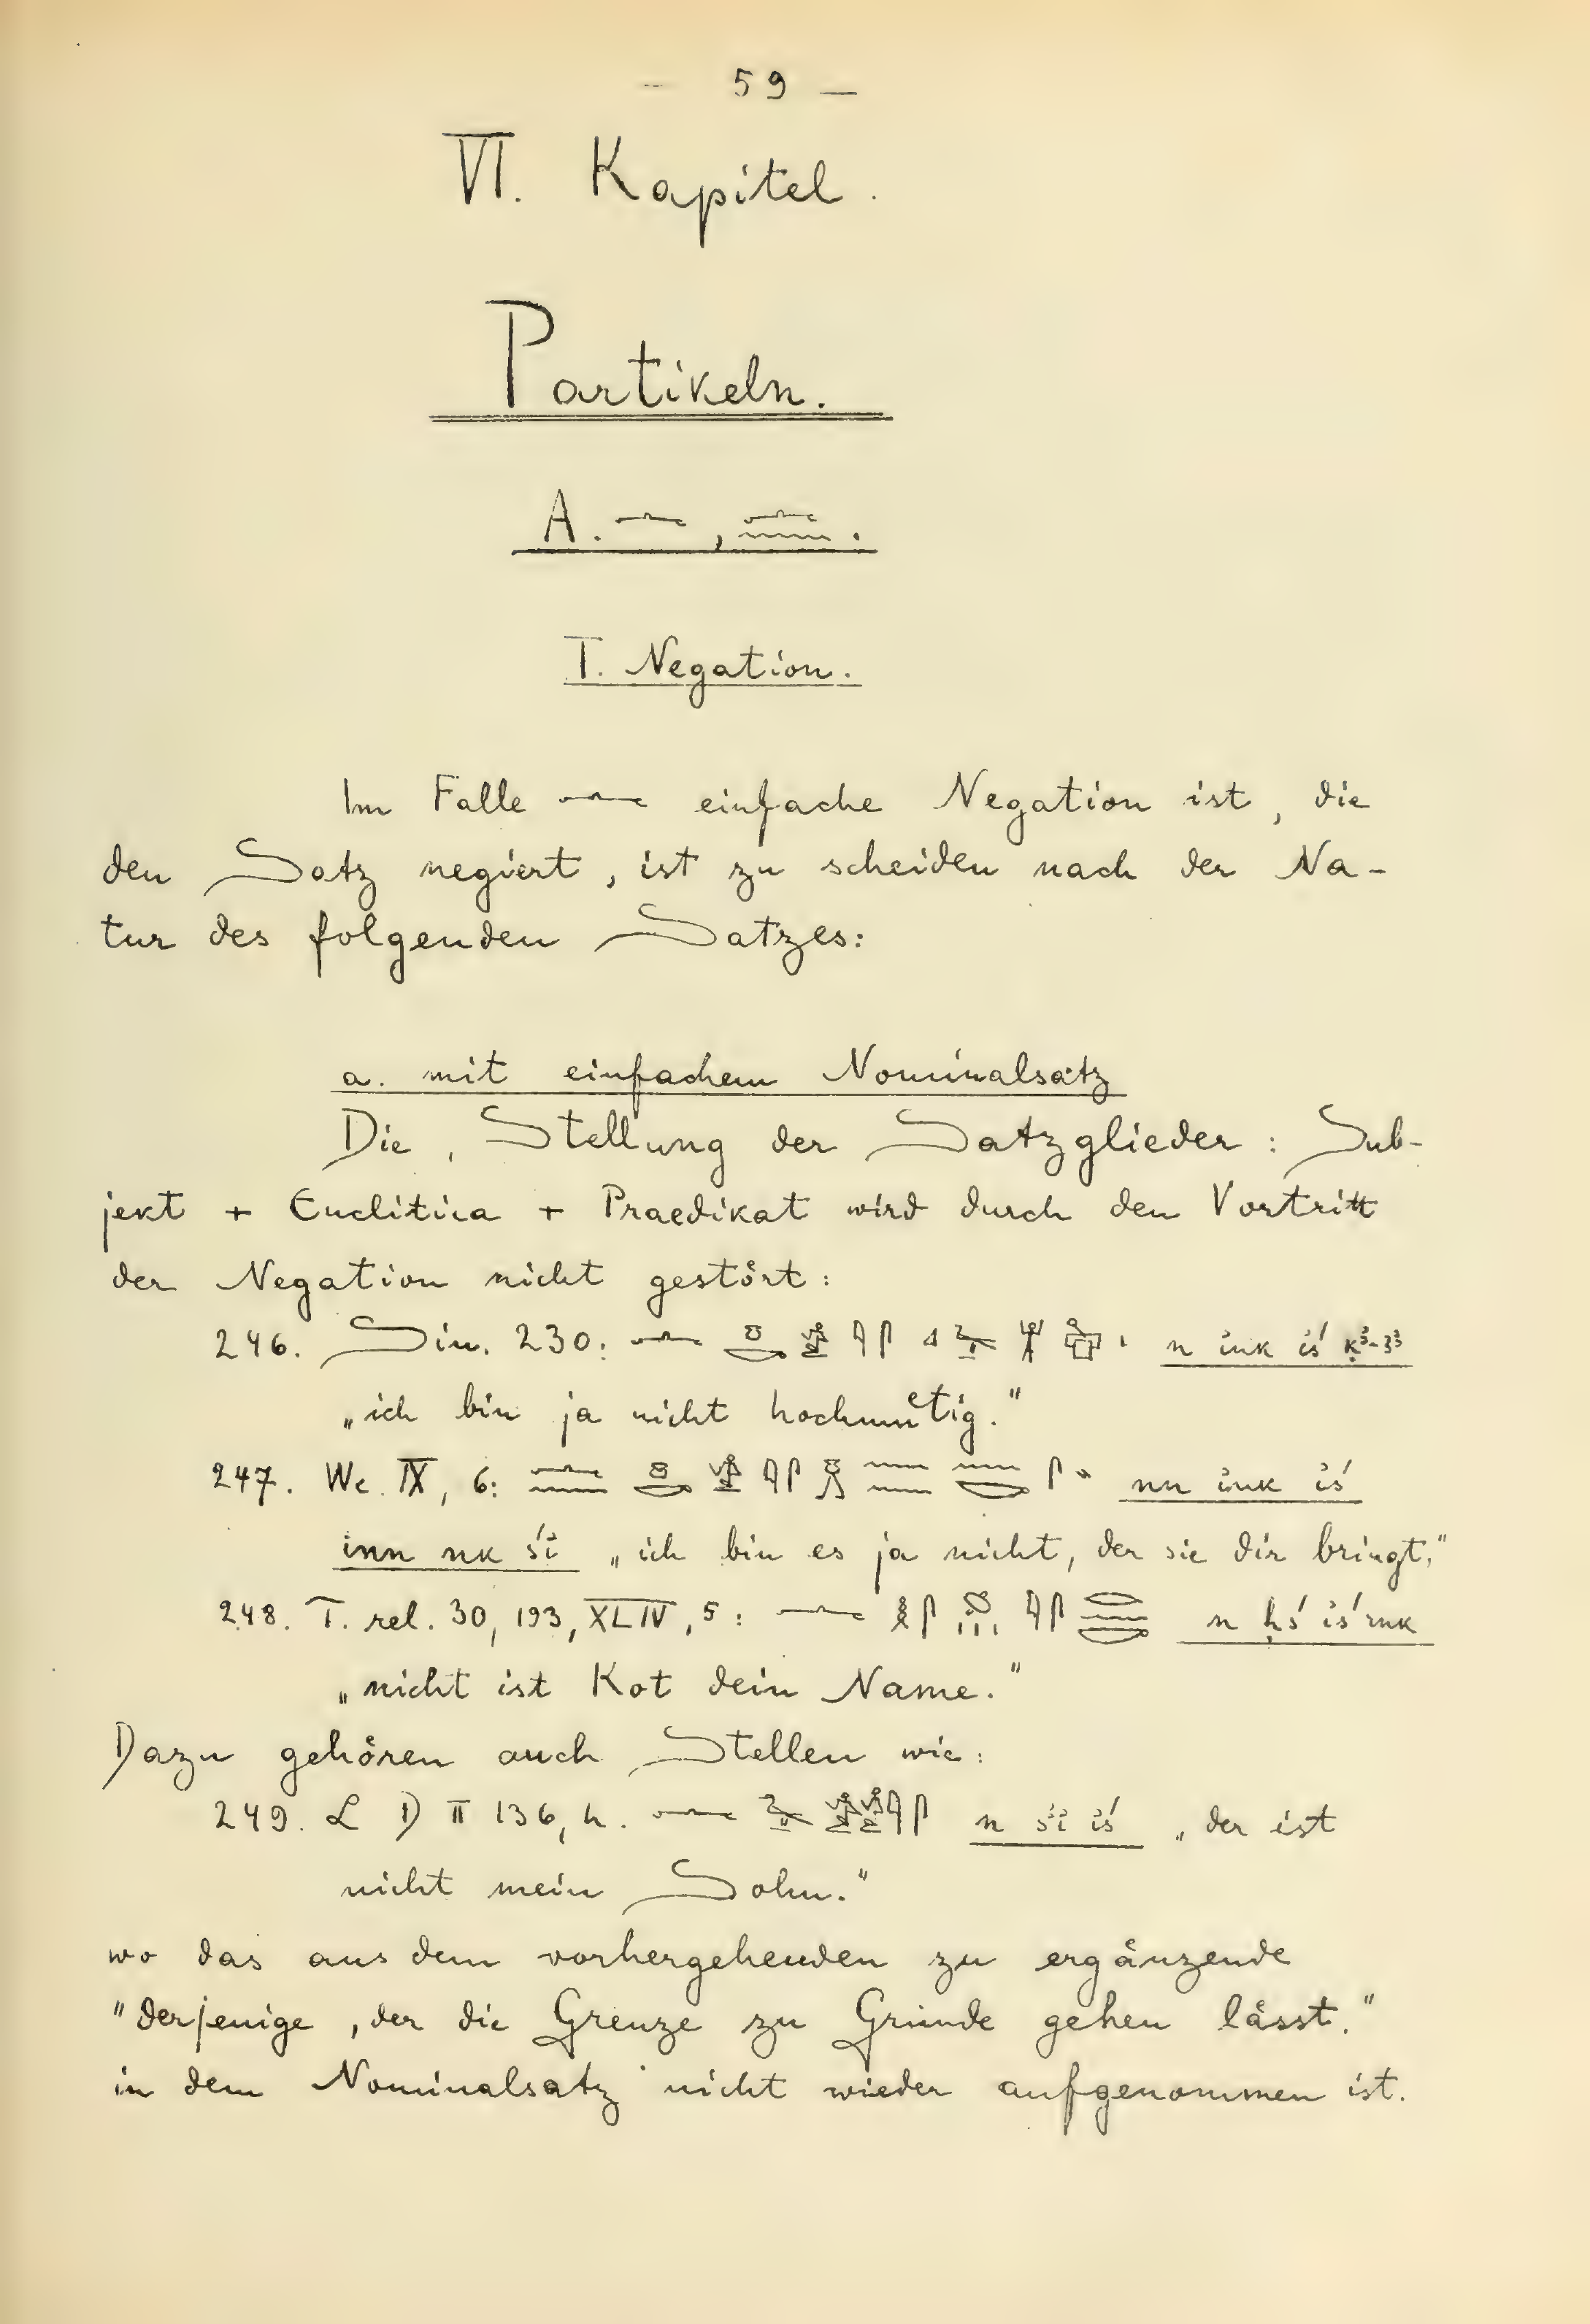 - 59 -
VI. Kapitel.
Partikeln.
A. 𓂜, 𓂜𓈖.
I. Negation.
Im Falle 𓂜 einfache Negation ist, die
den Satz negiert, ist zu scheiden nach der Na-
tur des folgenden Satzes:
a. mit einfachem Nominalsatz
Die Stellung der Satzglieder: Sub-
jekt + Enclitica + Praedikat wird durch den Vortritt
der Negation nicht gestört:
246. Sin. 230: 𓂜 𓏌𓎡 𓇋𓋴 n ink iś
„ich bin ja nicht hochmütig."
247. We. IX, 6: 𓂜𓈖 𓏌𓎡 𓇋𓋴 𓏎 𓈖𓈖 𓈖𓎡 𓋴 nn ink iś
inn nk śi „ich bin es ja nicht, der sie dir bringt."
248. T. rel. 30, 193, XLIV, 5: 𓂜 𓎛𓋴 𓇋𓋴 𓂋𓈖𓎡 n ḥś iś rnk
„nicht ist Kot dein Name."
Dazu gehören auch Stellen wie:
249. L D II 136, h. 𓂜 𓇋𓋴 n śi iś „der ist
nicht mein Sohn."
wo das aus dem vorhergehenden zu ergänzende
"derjenige, der die Grenze zu Grunde gehen lässt."
in dem Nominalsatz nicht wieder aufgenommen ist.